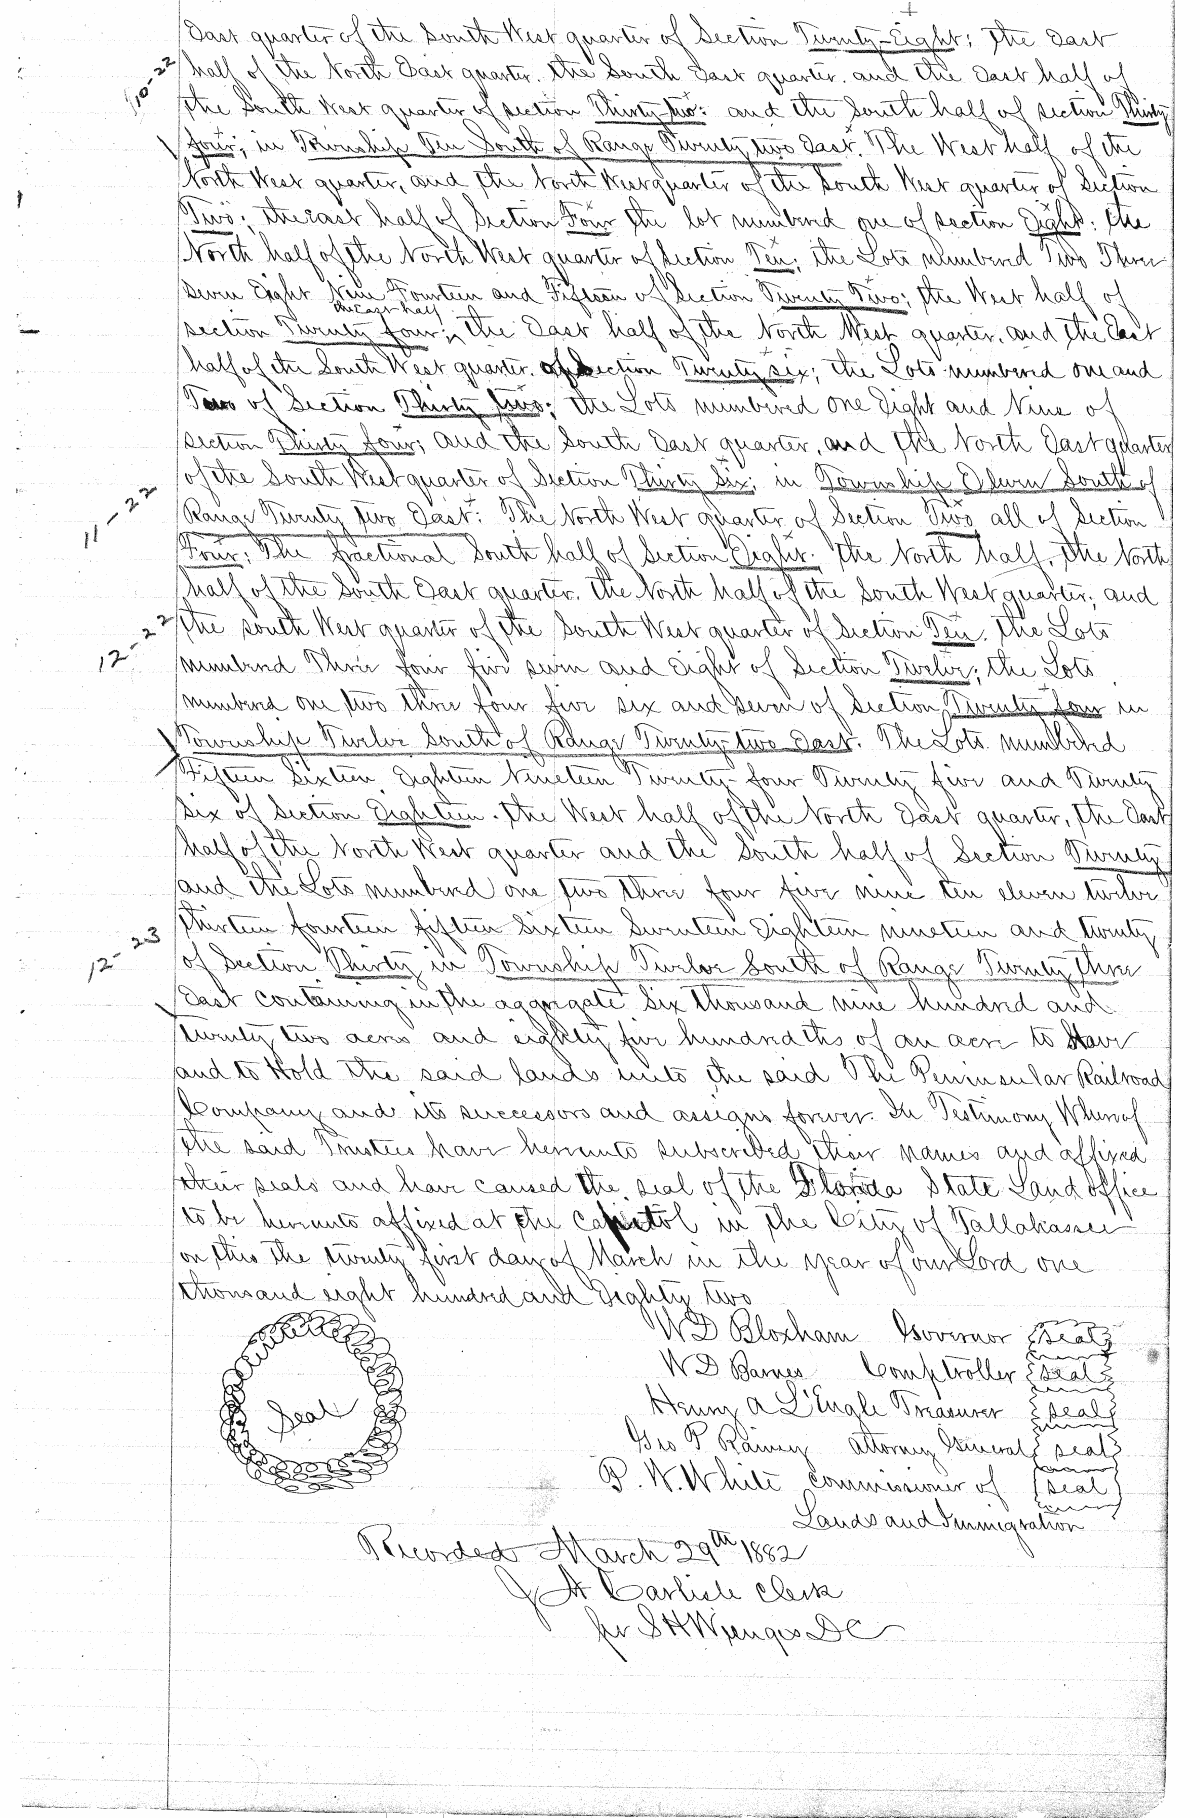 East quarter of the South West quarter of Section Twenty-Eight; The East
10-22
half of the North East quarter. the South East quarter. and the East half of
the South West quarter of section Thirty-two: and the South half of section Thirty
four; in Township Ten South of Range Twenty two East. The West half of the
North West quarter, and the North West quarter of the South West quarter of Section
Two; the East half of Section Four the lot numbered one of section Eight; the
North half of the North West quarter of Section Ten; the Lots numbered Two Three
Seven Eight Nine Fourteen and Fifteen of Section Twenty Two; the West half of
the East half
section Twenty four; the East half of the North West quarter. and the East
half of the South West quarter. of Section Twenty six; the Lots numbered one and
Two of Section Thirty two; the Lots numbered one Eight and Nine of
section Thirty four; and the South East quarter, and the North East quarter
of the South West quarter of Section Thirty Six; in Township Eleven South of
11-22
Range Twenty two East: The North West quarter of Section Two all of Section
Four; The fractional South half of Section Eight. the North half, the North
half of the South East quarter. the North half of the South West quarter; and
12-22
the south West quarter of the South West quarter of Section Ten. the Lots
numbered Three four five seven and Eight of Section Twelve; the Lots
numbered one two three four five six and seven of Section Twenty four in
Township Twelve South of Range Twenty-two East. The Lots numbered
Fifteen Sixteen Eighteen Nineteen Twenty-four Twenty five and Twenty
Six of Section Eighteen. the West half of the North East quarter, the East
half of the North West quarter and the South half of Section Twenty
and the Lots numbered one two three four five nine ten eleven twelve
thirteen fourteen fifteen Sixteen Seventeen Eighteen nineteen and twenty
12-23
of Section Thirty in Township Twelve South of Range Twenty three
East containing in the aggregate Six thousand nine hundred and
twenty two acres and eighty five hundredths of an acre to Have
and to Hold the said lands unto the said The Peninsular Railroad
Company and its successors and assigns forever. In Testimony Whereof
the said Trustees have hereunto subscribed their names and affixed
their seals and have caused the seal of the Florida State Land office
to be hereunto affixed at the Capitol in the City of Tallahassee
on this the twenty first day of March in the year of our Lord one
thousand eight hundred and Eighty two
W D Bloxham Governor seal
W D Barnes Comptroller seal
Seal
Henry A L'Engle Treasurer seal
Geo P Raney Attorney General seal
P. W. White commissioner of seal
Lands and Immigration
Recorded March 29th 1882
J A Carlisle Clerk
per S H Wienges DC